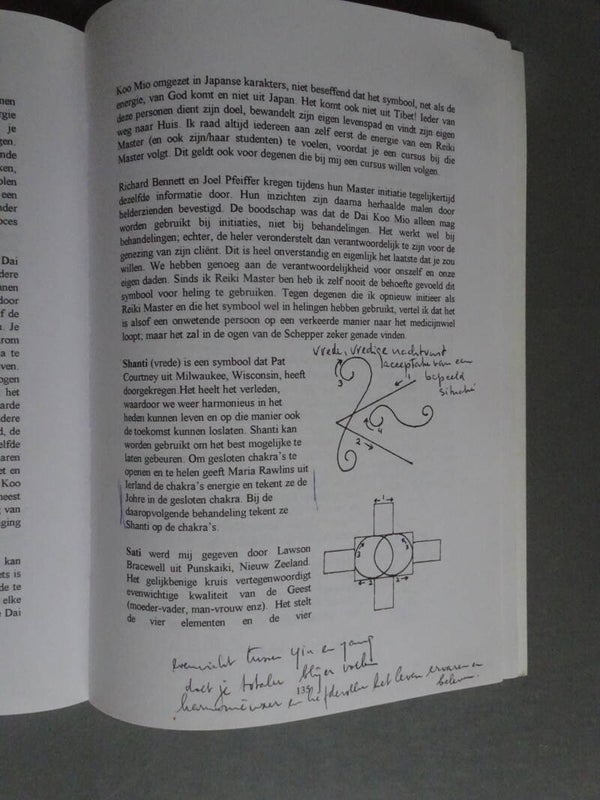 nen
rgie
je
gen.
nde
ken,
olen
een
nder
oces
Dai
dere
nnen
door
f de
. Je
rom
a te
ven.
ogen
het
arde
dere
d, de
elfde
aren
et en
Koo
neest
van
ging
kan
ets is
de te
elke
e Dai
Koo Mio omgezet in Japanse karakters, niet beseffend dat het symbool, net als de
energie, van God komt en niet uit Japan. Het komt ook niet uit Tibet! Ieder van
deze personen dient zijn doel, bewandelt zijn eigen levenspad en vindt zijn eigen
weg naar Huis. Ik raad altijd iedereen aan zelf eerst de energie van een Reiki
Master (en ook zijn/haar studenten) te voelen, voordat je een cursus bij die
Master volgt. Dit geldt ook voor degenen die bij mij een cursus willen volgen.
Richard Bennett en Joel Pfeiffer kregen tijdens hun Master initiatie tegelijkertijd
dezelfde informatie door. Hun inzichten zijn daarna herhaalde malen door
helderzienden bevestigd. De boodschap was dat de Dai Koo Mio alleen mag
worden gebruikt bij initiaties, niet bij behandelingen. Het werkt wel bij
behandelingen; echter, de heler veronderstelt dan verantwoordelijk te zijn voor de
genezing van zijn cliënt. Dit is heel onverstandig en eigenlijk het laatste dat je zou
willen. We hebben genoeg aan de verantwoordelijkheid voor onszelf en onze
eigen daden. Sinds ik Reiki Master ben heb ik zelf nooit de behoefte gevoeld dit
symbool voor heling te gebruiken. Tegen degenen die ik opnieuw initieer als
Reiki Master en die het symbool wel in helingen hebben gebruikt, vertel ik dat het
is alsof een onwetende persoon op een verkeerde manier naar het medicijnwiel
loopt; maar het zal in de ogen van de Schepper zeker genade vinden.
vrede, vredige nachtrust
acceptatie van een
bepaald
situatie
Shanti (vrede) is een symbool dat Pat
Courtney uit Milwaukee, Wisconsin, heeft
doorgekregen.Het heelt het verleden,
waardoor we weer harmonieus in het
heden kunnen leven en op die manier ook
de toekomst kunnen loslaten. Shanti kan
worden gebruikt om het best mogelijke te
laten gebeuren. Om gesloten chakra's te
openen en te helen geeft Maria Rawlins uit
Ierland de chakra's energie en tekent ze de
Johre in de gesloten chakra. Bij de
daaropvolgende behandeling tekent ze
Shanti op de chakra's.
1
3
4
2
Sati werd mij gegeven door Lawson
Bracewell uit Punskaiki, Nieuw Zeeland.
Het gelijkbenige kruis vertegenwoordigt
evenwichtige kwaliteit van de Geest
(moeder-vader, man-vrouw enz). Het stelt
de vier elementen en de vier
1
2
evenwicht tussen yin en yang
doet je totaler blijer voelen
135
harmonieuzer en liefdevoller het leven ervaren en
beleven.